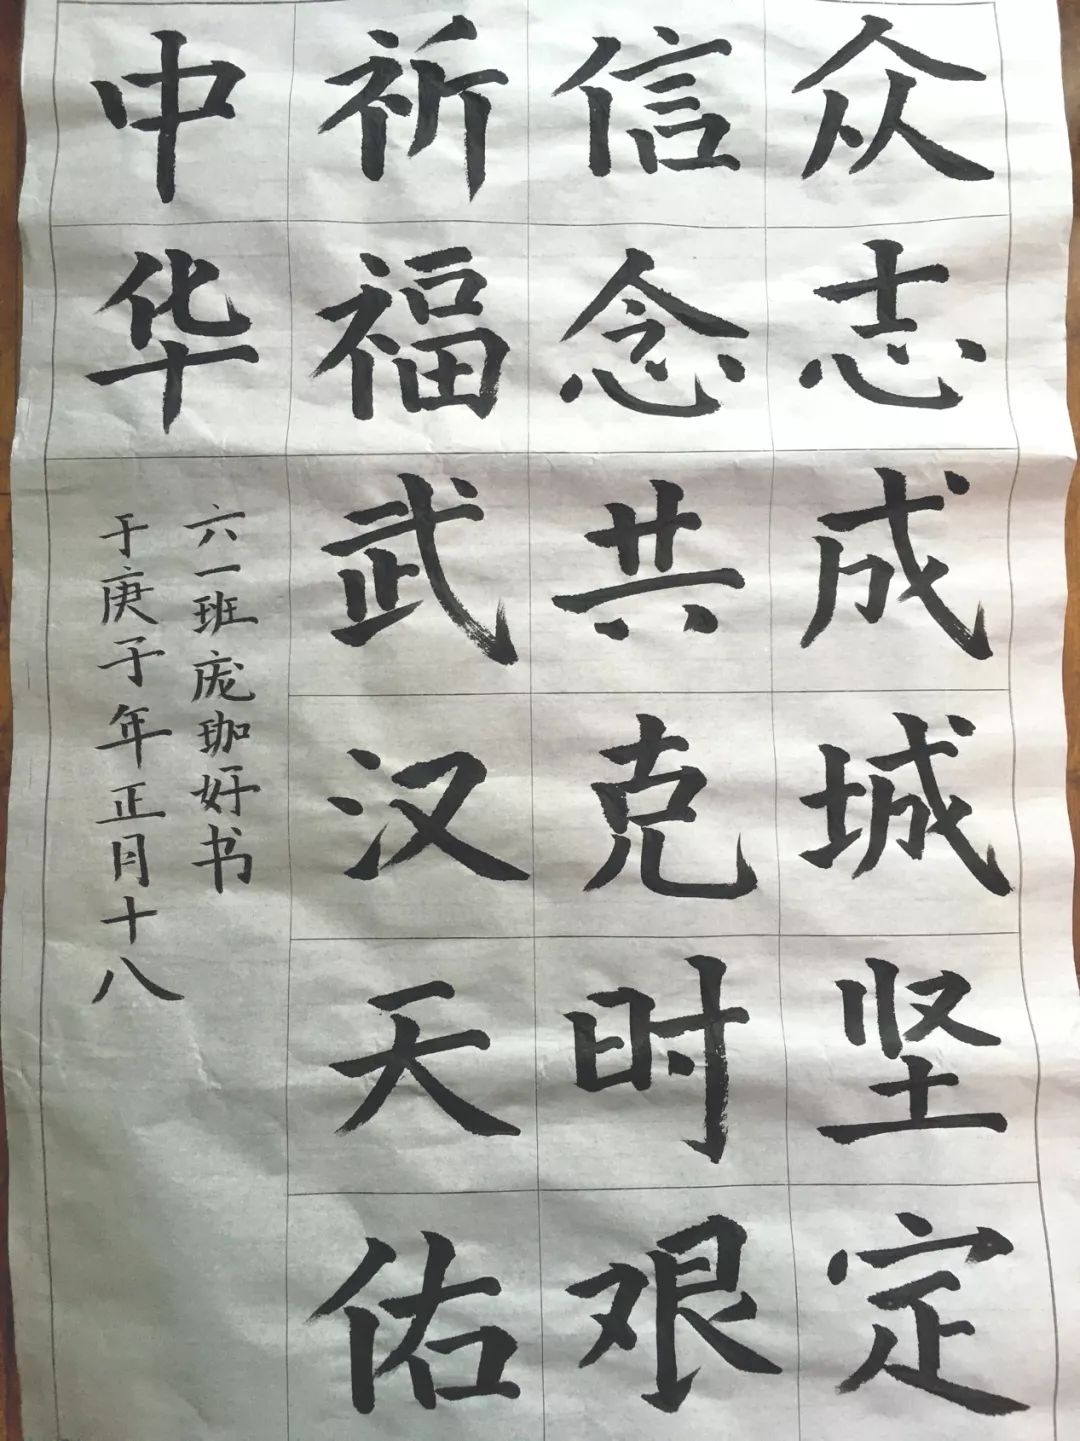 众志成城坚定
信念共克时艰
祈福武汉天佑
中华
六一班庞珈妤书
于庚子年正月十八